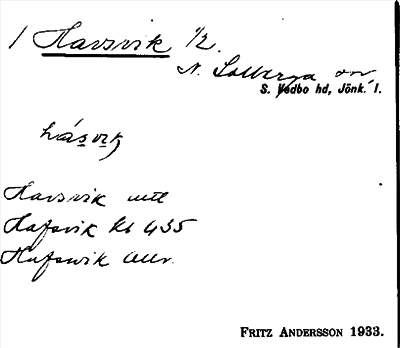 1 Havsvik 1/2
N. Solberga sn
S. Vedbo hd, Jönk. l.
Havsvik mtl
Hafsvik Kb 435
Hafsvik
FRITZ ANDERSSON 1933.